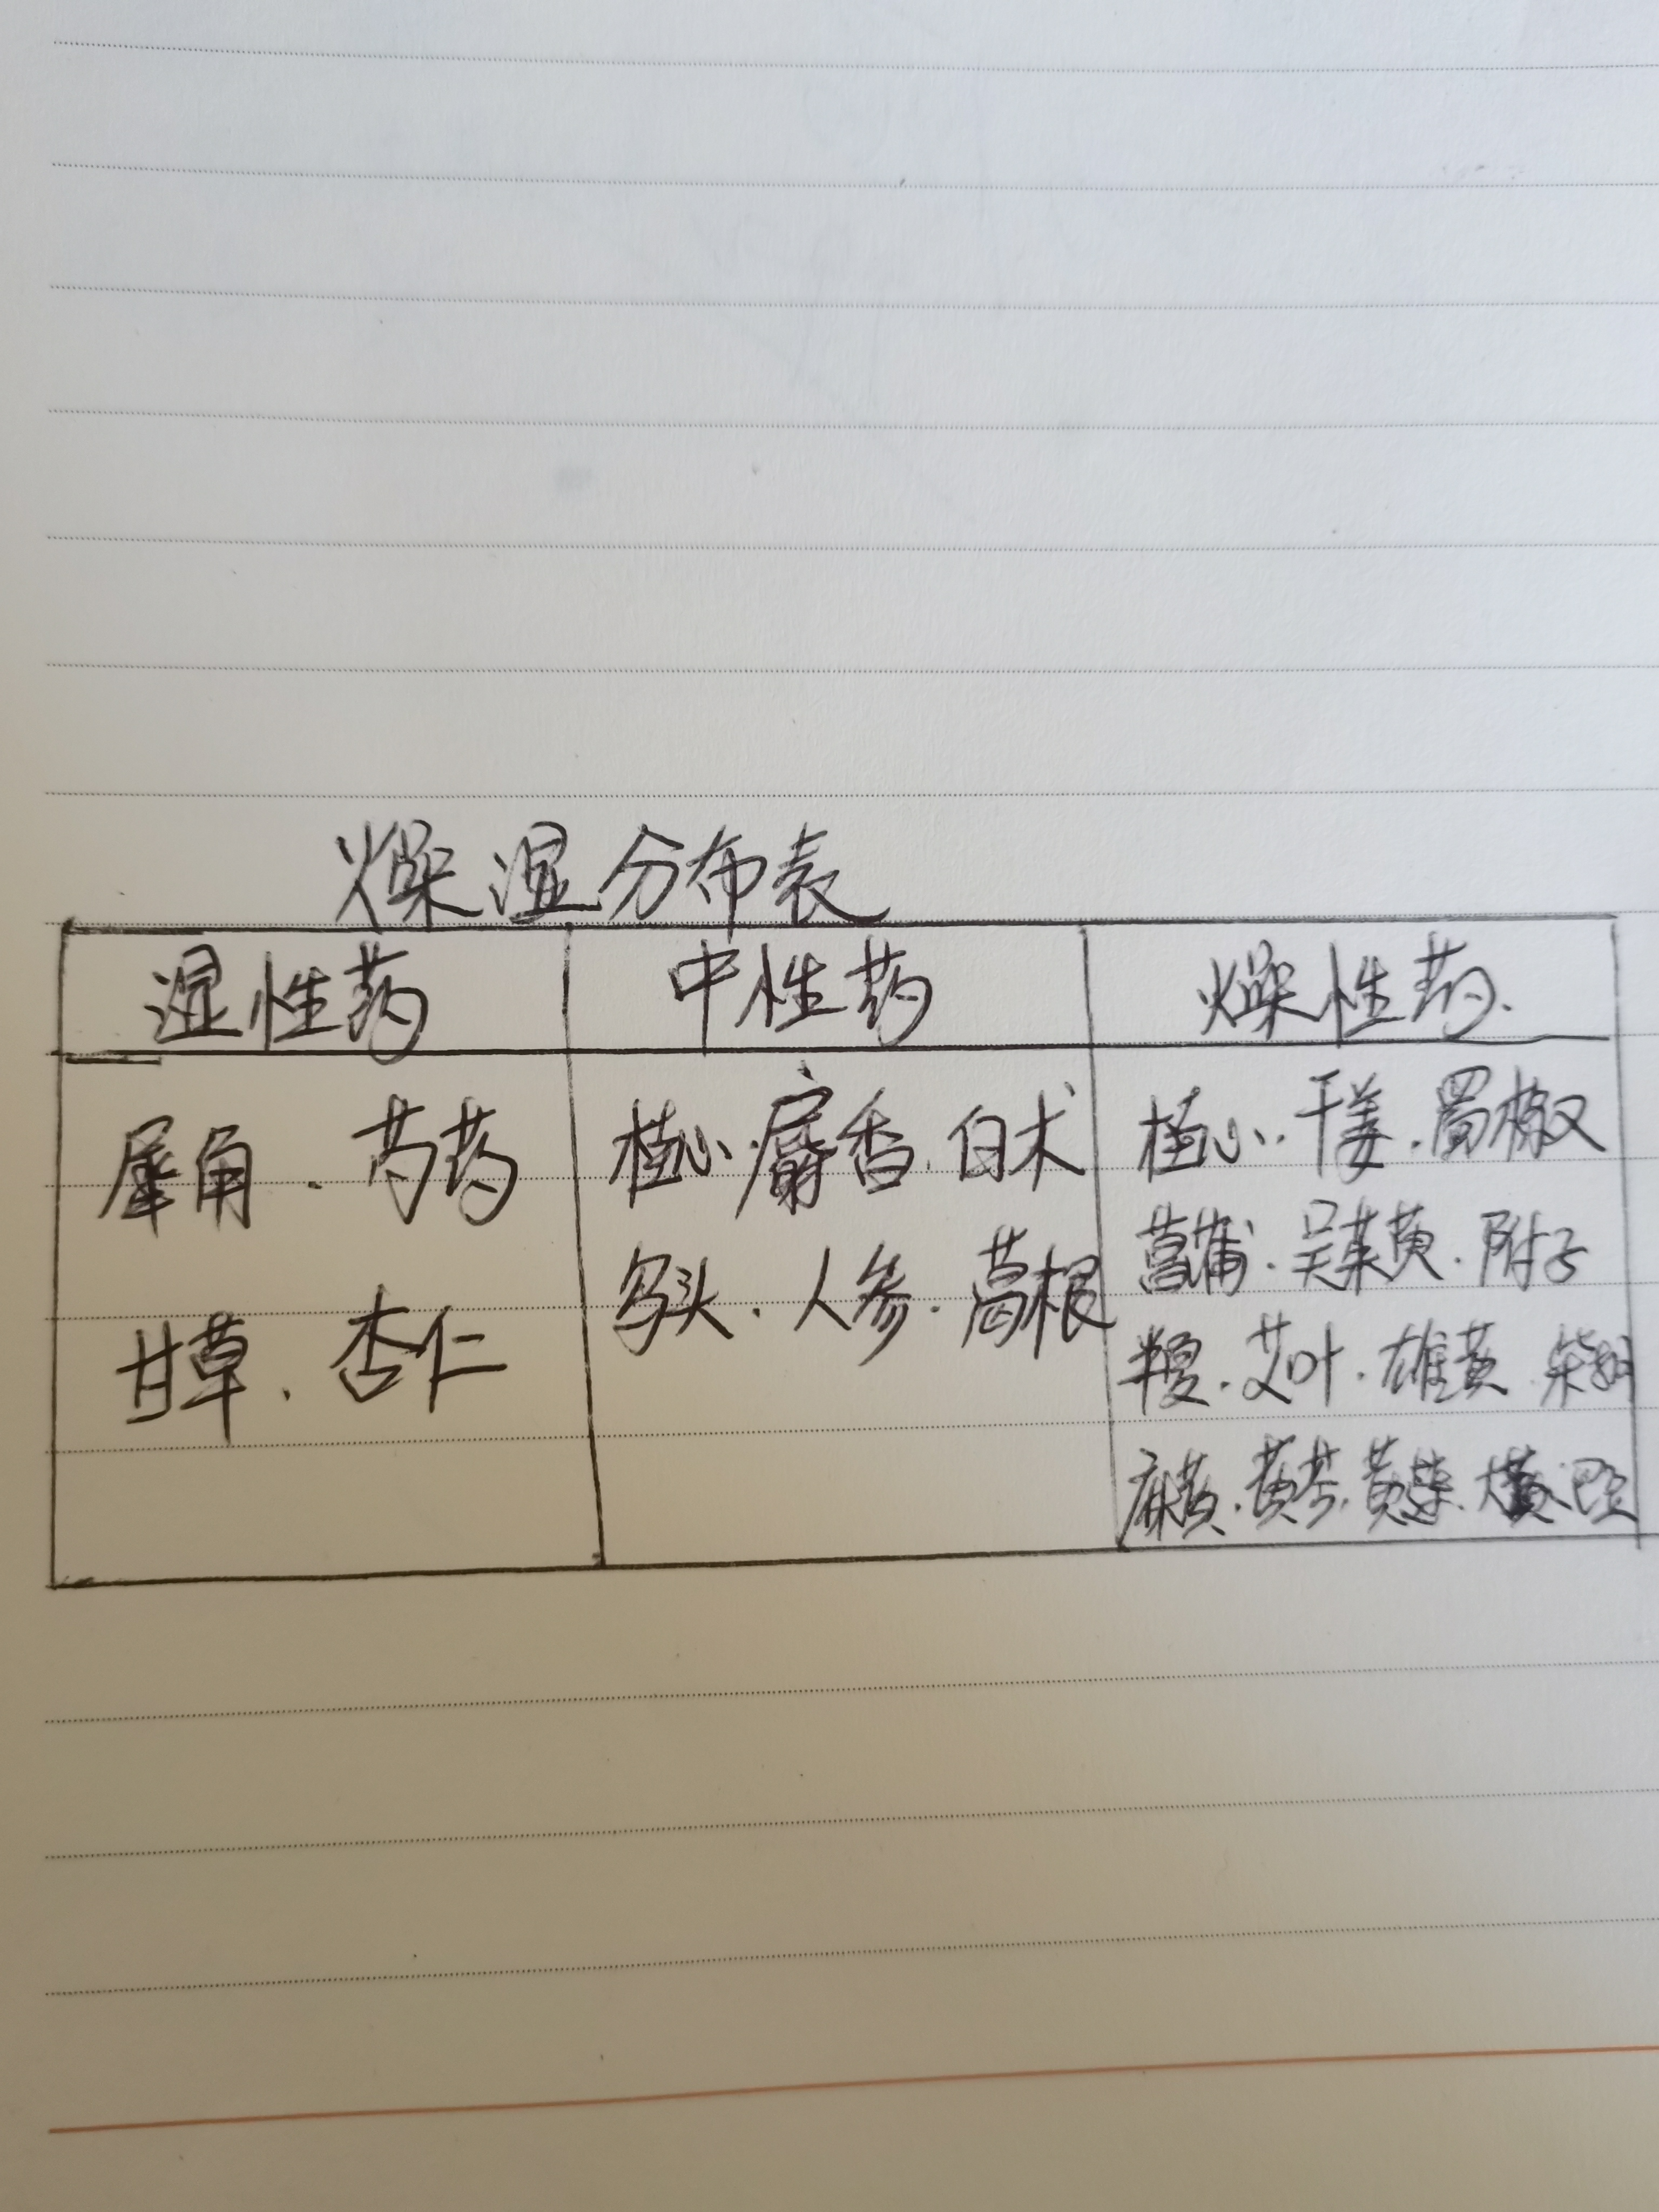 燥湿分布表
湿性药 中性药 燥性药.
犀角.芍药 桂心.麝香.白术 桂心.干姜.蜀椒
甘草.杏仁 乌头.人参.葛根 菖蒲.吴茱萸.附子
半夏.艾叶.雄黄.柴胡
麻黄.黄芩.黄连.大黄.巴豆